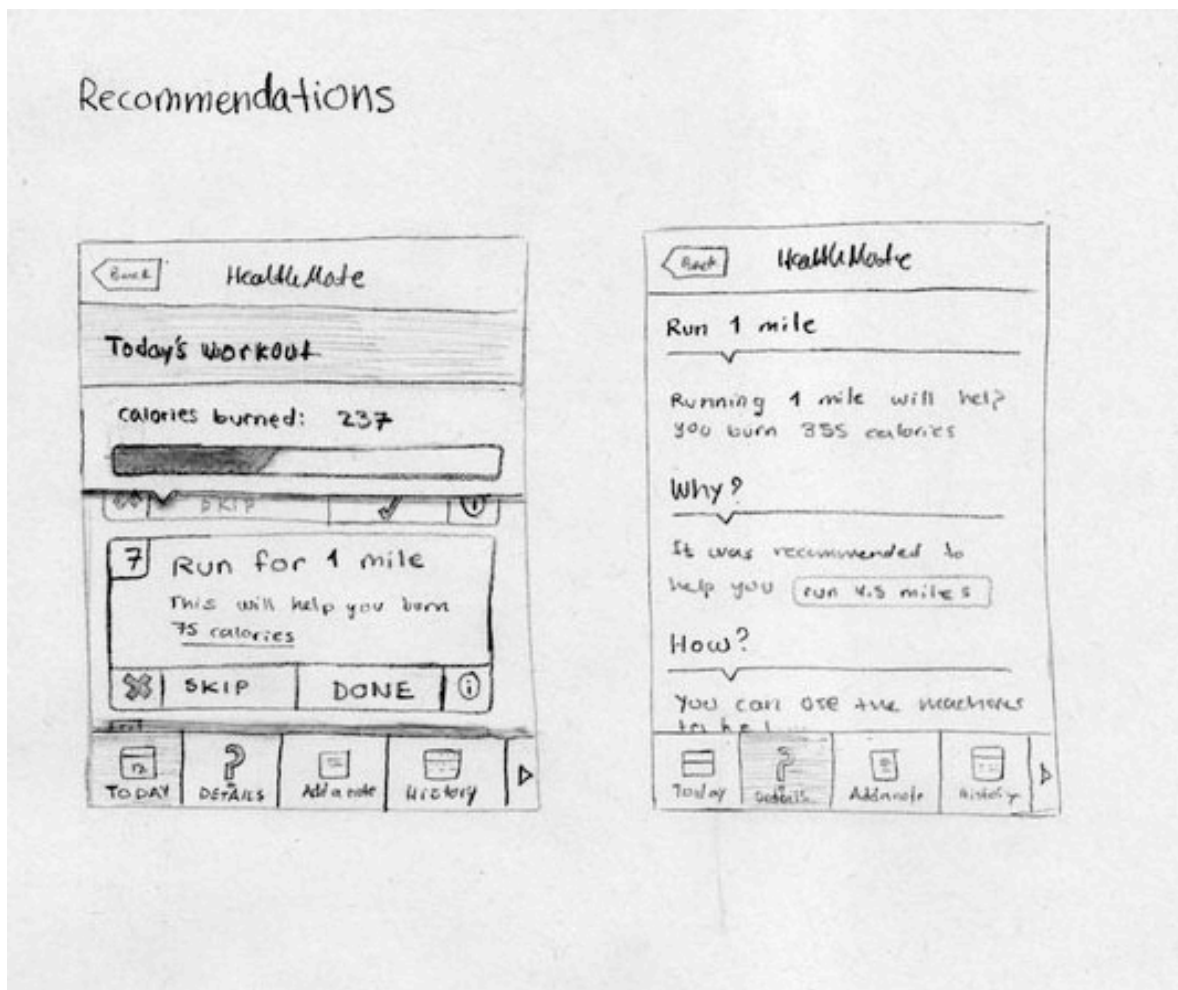 Recommendations
Back
HealthMate
Today's workout
calories burned: 237
SKIP
7
Run for 1 mile
This will help you burn
75 calories
SKIP
DONE
i
TODAY
DETAILS
Add a note
History
Back
HealthMate
Run 1 mile
Running 1 mile will help
you burn 355 calories
Why?
It was recommended to
help you run 4.5 miles
How?
You can use the machines
to
Today
Details
Add a note
History